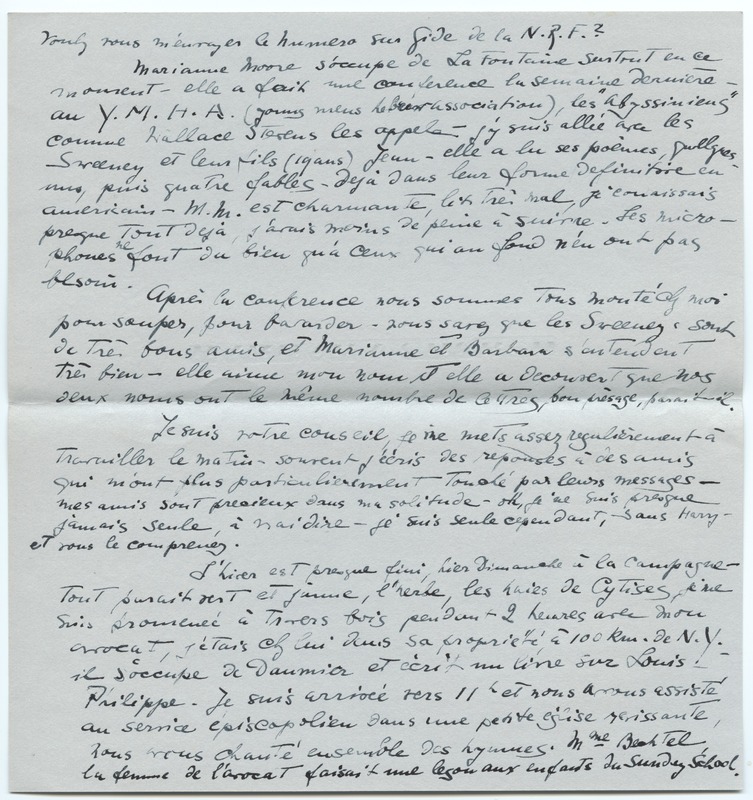 Voulez vous m'envoyer le numero sur Gide de la N.R.F.?
Marianne Moore s'occupe de La Fontaine surtout en ce
moment - elle a fait une conférence la semaine dernière -
au Y.M.H.A. (young mens hebrew association), les "Abyssiniens"
comme Wallace Stevens les appele - j'y suis allée avec les
Sweeney et leur fils (19 ans) Jean - elle a lu ses poèmes, quelques
uns, puis quatre fables - déjà dans leur forme definitive en
americain - M.M. est charmante, lit très mal, je conaissais
presque tout dejà, j'avais moins de peine à suivre - Les micro-
phones ne font du bien qu'à ceux qui au fond n'en ont pas
besoin.
Après la conference nous sommes tous monté ch moi
pour souper, pour bavarder - vous savez que les Sweeney s sont
de très bons amis, et Marianne et Barbara s'entendent
très bien - elle aime mon nom et elle a decouvert que nos
deux noms ont le même nombre de lettres, bon présage, parait-il.
Je suis votre conseil, je me mets assez regulièrement à
travailler le matin - souvent j'écris des reponses à des amis
qui m'ont plus particulierement touché par leurs messages -
mes amis sont precieux dans ma solitude - oh, je ne suis presque
jamais seule, à vrai dire - je suis seule cependant, sans Harry -
et vous le comprenez.
L'hiver est presque fini, hier Dimanche à la campagne -
tout parait vert et jaune, l'herbe, les haies de Cytises, je me
suis promeneé à travers bois pendant 2 heures avec mon
avocat, j'étais ch lui dans sa propriété à 100 km. de N.Y. -
il s'occupe de Daumier et écrit un livre sur Louis-
Philippe. Je suis arrivée vers 11h et nous avons assisté
au service épiscopolien dans une petite église ravissante,
nous avons chanté ensemble des hymnes. Mme Bechtel
la femme de l'avocat faisait une leçon aux enfants du Sunday School.